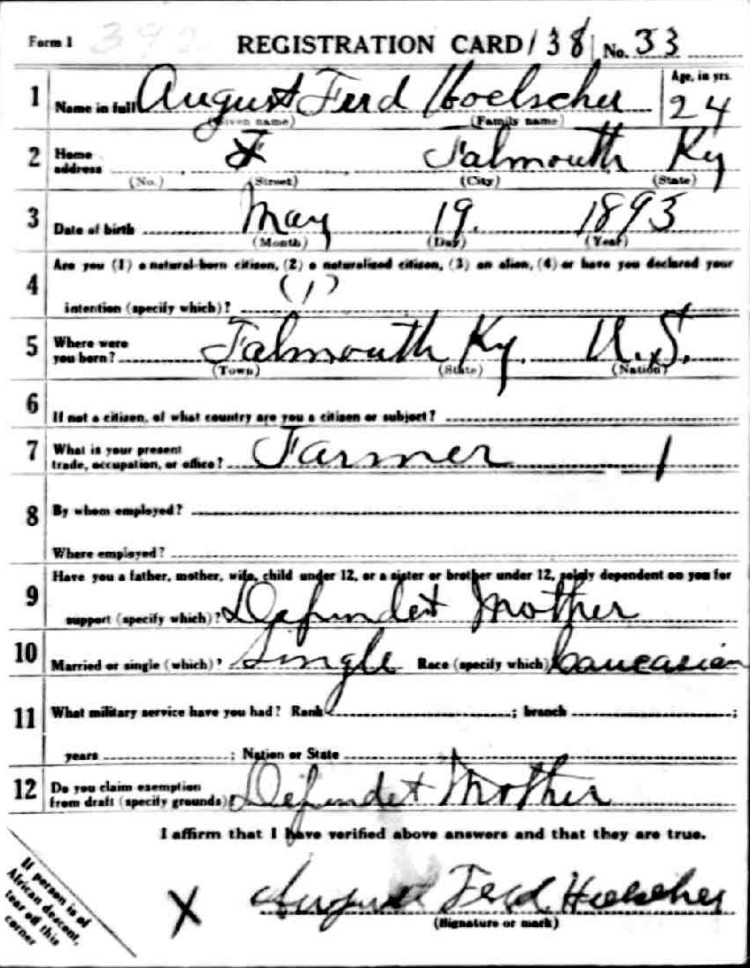 Form 1 392 REGISTRATION CARD 138 No. 33
1 Name in full August Ferd Hoelscher Age, in yrs. 24
(Given name) (Family name)
2 Home address Falmouth Ky
(No.) (Street) (City) (State)
3 Date of birth May 19. 1893
(Month) (Day) (Year)
4 Are you (1) a natural-born citizen, (2) a naturalized citizen, (3) an alien, (4) or have you declared your
intention (specify which)? (1)
5 Where were you born? Falmouth Ky. U.S.
(Town) (State) (Nation)
6 If not a citizen, of what country are you a citizen or subject?
7 What is your present trade, occupation, or office? Farmer 1
8 By whom employed?
Where employed?
9 Have you a father, mother, wife, child under 12, or a sister or brother under 12, solely dependent on you for
support (specify which)? Defundet Mother
10 Married or single (which)? Single Race (specify which) Caucasian
11 What military service have you had? Rank ; branch ;
years ; Nation or State
12 Do you claim exemption from draft (specify grounds) Defundet Mother
I affirm that I have verified above answers and that they are true.
X August Ferd Hoelscher
(Signature or mark)
If person is of
African descent,
tear off this
corner